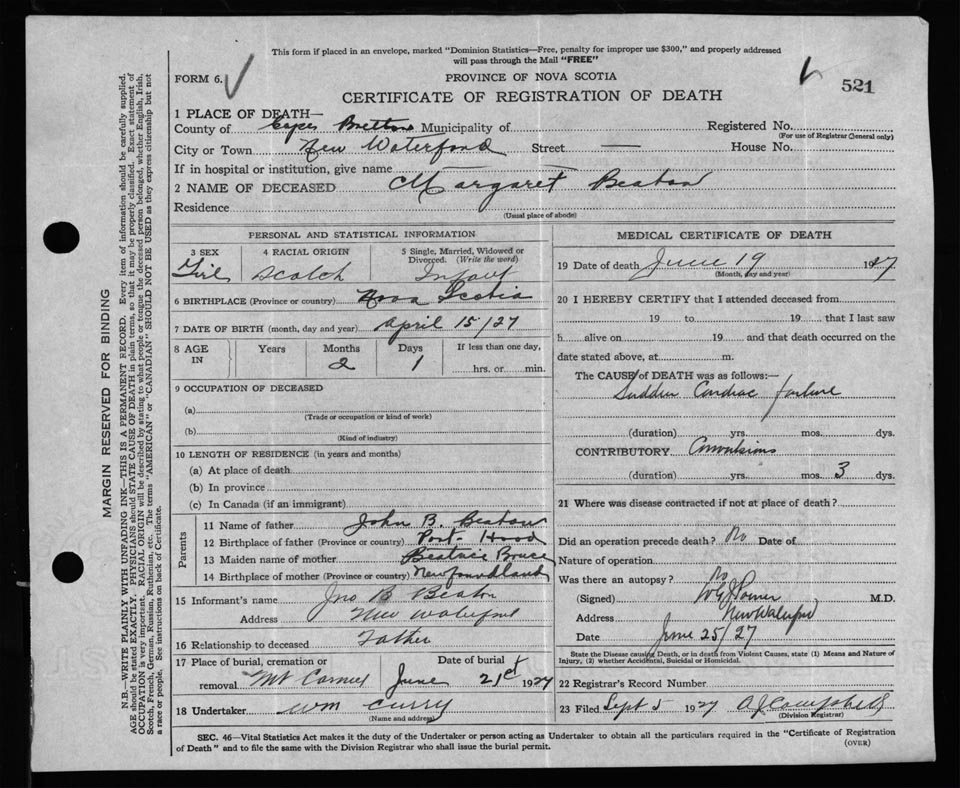 This form if placed in an envelope, marked "Dominion Statistics—Free, penalty for improper use $300," and properly addressed
will pass through the Mail "FREE"
FORM 6.
PROVINCE OF NOVA SCOTIA
521
CERTIFICATE OF REGISTRATION OF DEATH
1 PLACE OF DEATH—
County of Cape Breton Municipality of Registered No.
(For use of Registrar General only)
City or Town New Waterford Street — House No.
If in hospital or institution, give name
2 NAME OF DECEASED Margaret Beaton
Residence
(Usual place of abode)
PERSONAL AND STATISTICAL INFORMATION
3 SEX 4 RACIAL ORIGIN 5 Single, Married, Widowed or
Divorced. (Write the word)
Girl Scotch Infant
6 BIRTHPLACE (Province or country) Nova Scotia
7 DATE OF BIRTH (month, day and year) April 15/27
8 AGE IN Years Months Days If less than one day,
2 1 hrs. or min.
9 OCCUPATION OF DECEASED
(a)
(Trade or occupation or kind of work)
(b)
(Kind of industry)
10 LENGTH OF RESIDENCE (in years and months)
(a) At place of death
(b) In province
(c) In Canada (if an immigrant)
Parents
11 Name of father John B. Beaton
12 Birthplace of father (Province or country) Port-Hood
13 Maiden name of mother Beatrice Bruce
14 Birthplace of mother (Province or country) Newfoundland
15 Informant's name Jno B Beaton
Address New Waterford
16 Relationship to deceased Father
17 Place of burial, cremation or Date of burial
removal Mt Carmel June 21st 1927
18 Undertaker Wm Curry
(Name and address)
MEDICAL CERTIFICATE OF DEATH
19 Date of death June 19 1927
(Month, day and year)
20 I HEREBY CERTIFY that I attended deceased from
19 to 19 that I last saw
h alive on 19 and that death occurred on the
date stated above, at m.
The CAUSE of DEATH was as follows:—
Sudden Cardiac failure
(duration) yrs. mos. dys.
CONTRIBUTORY Convulsions
(duration) yrs. mos. 3 dys.
21 Where was disease contracted if not at place of death?
Did an operation precede death? No Date of
Nature of operation
Was there an autopsy? No
(Signed) M.D.
Address New Waterford
Date June 25/27
State the Disease causing Death, or in death from Violent Causes, state (1) Means and Nature of
Injury, (2) whether Accidental, Suicidal or Homicidal.
22 Registrar's Record Number
23 Filed Sept 5 1927 A J Campbell
(Division Registrar)
SEC. 46—Vital Statistics Act makes it the duty of the Undertaker or person acting as Undertaker to obtain all the particulars required in the "Certificate of Registration
of Death" and to file the same with the Division Registrar who shall issue the burial permit.
(OVER)
MARGIN RESERVED FOR BINDING
N.B.—WRITE PLAINLY WITH UNFADING INK—THIS IS A PERMANENT RECORD. Every item of information should be carefully supplied.
AGE should be stated EXACTLY. PHYSICIANS should STATE CAUSE OF DEATH in plain terms, so that it may be properly classified. Exact statement of
OCCUPATION is very important. RACIAL ORIGIN will be described by stating to what people or tongue the deceased person belonged, whether English, Irish,
Scotch, French, German, Russian, Ruthenian, etc. The terms "AMERICAN" or "CANADIAN" SHOULD NOT BE USED as they express citizenship but not
a race or people. See instructions on back of Certificate.